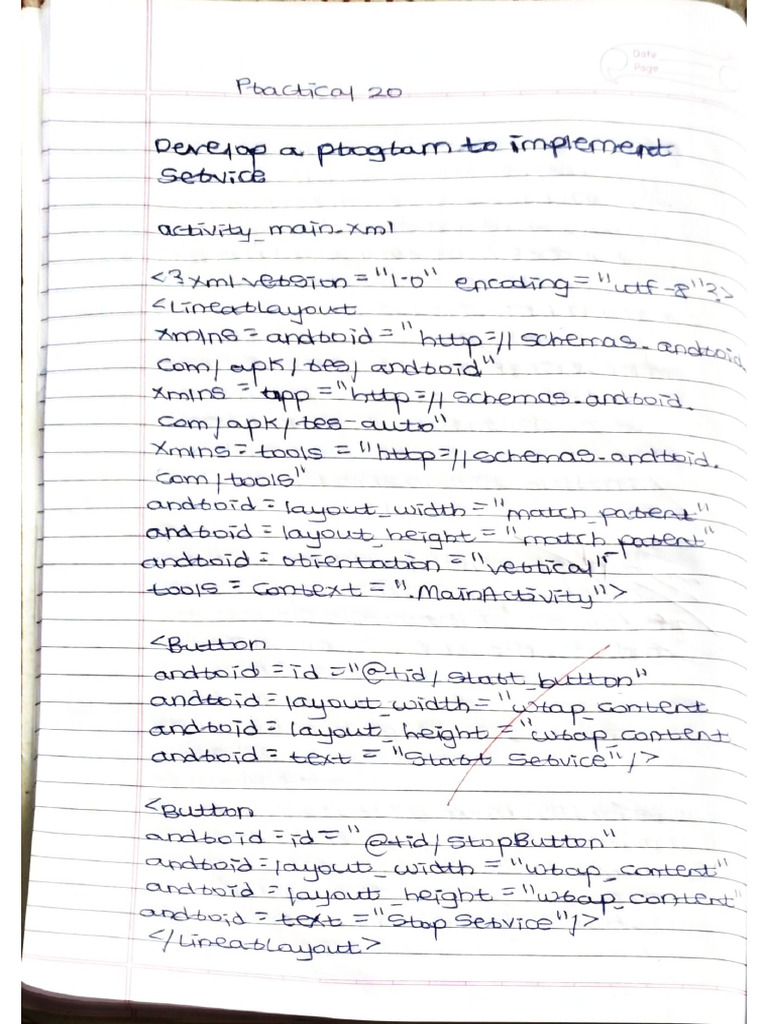 Date
Page
Practical 20
Develop a program to implement
Service
activity_main.xml
<?xml version = "1.0" encoding = "utf-8"?>
<LinearLayout
xmlns = android = "http=// schemas.android.
com/apk/res/android"
xmlns = app = "http=//schemas.android.
com/apk/res-auto"
xmlns = tools = "http=//schemas.android.
com/tools"
android = layout_width = "match_parent"
android = layout_height = "match_parent"
android = orientation = "vertical"
tools = context = ".MainActivity">
<Button
android = id = "@+id/start_button"
android = layout_width = "wrap_content
android = layout_height = "wrap_content
android = text = "Start Service"/>
<Button
android = id = "@+id/StopButton"
android = layout_width = "wrap_content"
android = layout_height = "wrap_content"
android = text = "Stop Service"/>
</LinearLayout>